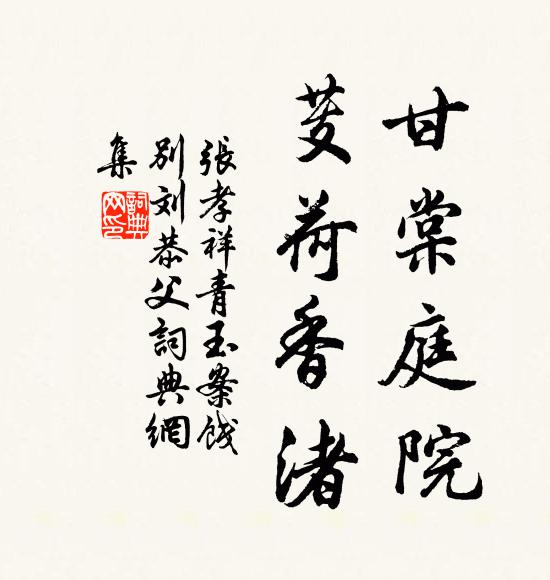 甘棠庭院
芰荷香渚
張孝祥青玉案餞
別刘恭父詞典網
集
詞典网印